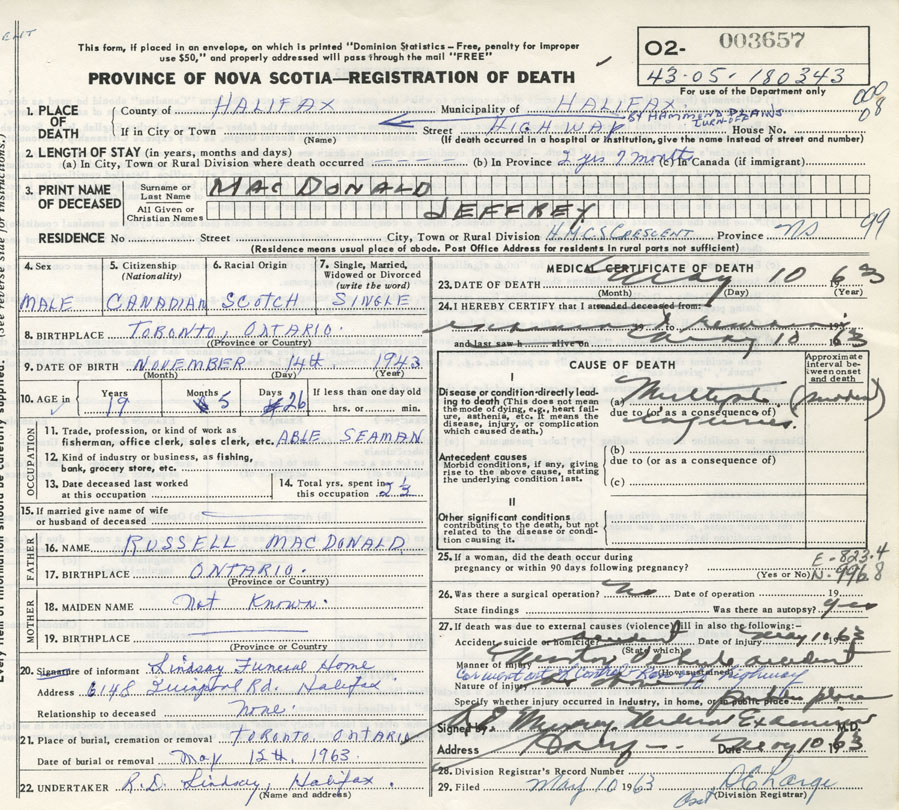 This form, if placed in an envelope, on which is printed "Dominion Statistics - Free, penalty for improper
use $50," and properly addressed will pass through the mail "FREE"
PROVINCE OF NOVA SCOTIA—REGISTRATION OF DEATH
O2- 003657
43-05-180343
For use of the Department only
1. PLACE OF DEATH
County of HALIFAX
Municipality of HALIFAX
If in City or Town
(Name)
Street HIGHWAY House No.
BY HAMMOND PLAINS
TURN-OFF
(If death occurred in a hospital or institution, give the name instead of street and number)
2. LENGTH OF STAY (in years, months and days)
(a) In City, Town or Rural Division where death occurred (b) In Province 2 yrs 7 months (c) In Canada (if immigrant)
3. PRINT NAME OF DECEASED
Surname or Last Name MACDONALD
All Given or Christian Names JEFFREY
RESIDENCE No Street City, Town or Rural Division H.M.C.S CRESCENT Province NS 99
(Residence means usual place of abode. Post Office Address for residents in rural parts not sufficient)
4. Sex
MALE
5. Citizenship (Nationality)
CANADIAN
6. Racial Origin
SCOTCH
7. Single, Married, Widowed or Divorced (write the word)
SINGLE
8. BIRTHPLACE TORONTO, ONTARIO.
(Province or Country)
9. DATE OF BIRTH NOVEMBER 14th 1943
(Month) (Day) (Year)
10. AGE in Years 19 Months 5 Days 26 If less than one day old
hrs. or min.
OCCUPATION
11. Trade, profession, or kind of work as
fisherman, office clerk, sales clerk, etc. ABLE SEAMAN
12. Kind of industry or business, as fishing,
bank, grocery store, etc.
13. Date deceased last worked
at this occupation
14. Total yrs. spent in
this occupation 2 1/3
15. If married give name of wife
or husband of deceased
FATHER
16. NAME RUSSELL MACDONALD
17. BIRTHPLACE ONTARIO.
(Province or Country)
MOTHER
18. MAIDEN NAME Not Known.
19. BIRTHPLACE
(Province or Country)
20. Signature of informant Lindsay Funeral Home
Address 6148 Quinpool Rd. Halifax
Relationship to deceased None.
21. Place of burial, cremation or removal TORONTO ONTARIO
Date of burial or removal May 12th. 1963
22. UNDERTAKER R.D. Lindsay, Halifax.
(Name and address)
MEDICAL CERTIFICATE OF DEATH
23. DATE OF DEATH May 10 1963
(Month) (Day) (Year)
24. I HEREBY CERTIFY that I attended deceased from:
19 to 19
and last saw h alive on May 10 1963
CAUSE OF DEATH
Approximate interval between onset and death
I
Disease or condition directly leading to death (This does not mean the mode of dying, e.g., heart failure, asthenia, etc. It means the disease, injury, or complication which caused death.)
(a) Multiple
due to (or as a consequence of)
Injuries.
Antecedent causes
Morbid conditions, if any, giving rise to the above cause, stating the underlying condition last.
(b)
due to (or as a consequence of)
(c)
II
Other significant conditions
contributing to the death, but not related to the disease or condition causing it.
25. If a woman, did the death occur during
pregnancy or within 90 days following pregnancy?
(Yes or No)
E-823.4
N-996.8
26. Was there a surgical operation? No Date of operation 19
State findings Was there an autopsy? yes
27. If death was due to external causes (violence) fill in also the following:-
Accident, suicide or homicide? accident Date of injury May 10 63
(State which)
Manner of injury Motor Vehicle accident
(How sustained)
Car went out of control
Highway
Nature of injury
Specify whether injury occurred in industry, in home, or in public place public place
Signed by Medical Examiner M.D.
Address Date May 10 1963
28. Division Registrar's Record Number
29. Filed May 10 1963
(Division Registrar)